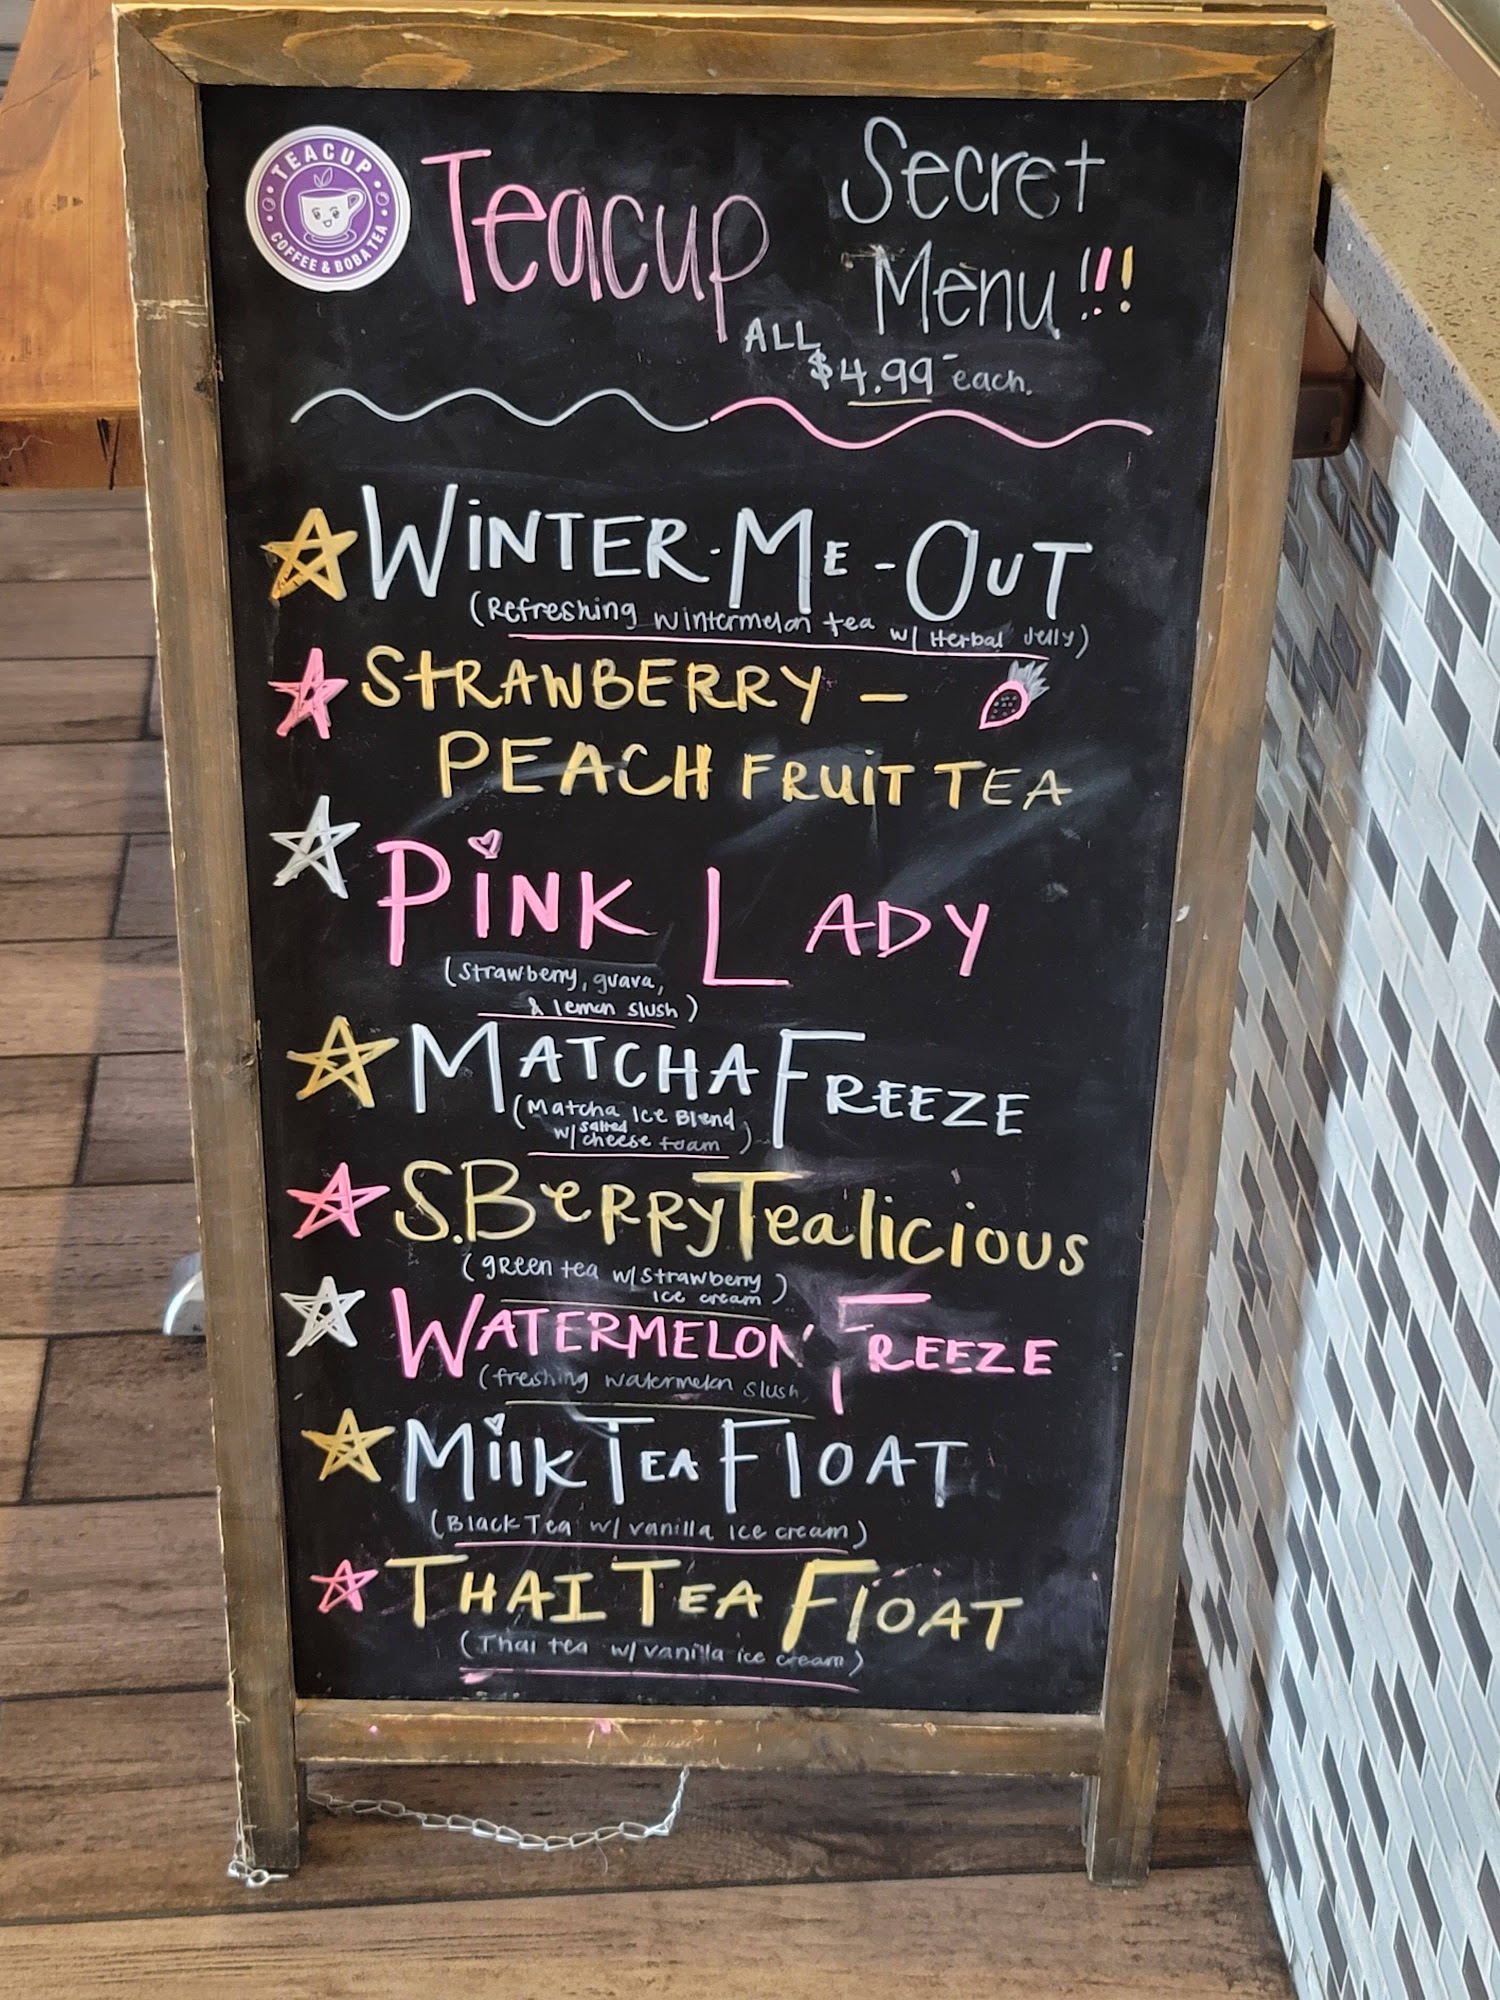 TEACUP
COFFEE & BOBA TEA
Teacup
Secret
Menu!!!
ALL
$4.99 each.
WINTER-ME-OUT
(Refreshing wintermelon tea w/ Herbal Jelly)
STRAWBERRY -
PEACH FRUIT TEA
PINK LADY
(strawberry, guava,
& lemon slush)
MATCHA FREEZE
(Matcha Ice Blend
w/ salted cheese foam)
S.BERRYTealicious
(green tea w/ strawberry
ice cream)
WATERMELON FREEZE
(freshing watermelon slush
Milk TEA FlOAT
(Black Tea w/ vanilla ice cream)
THAI TEA FlOAT
(Thai tea w/ vanilla ice cream)